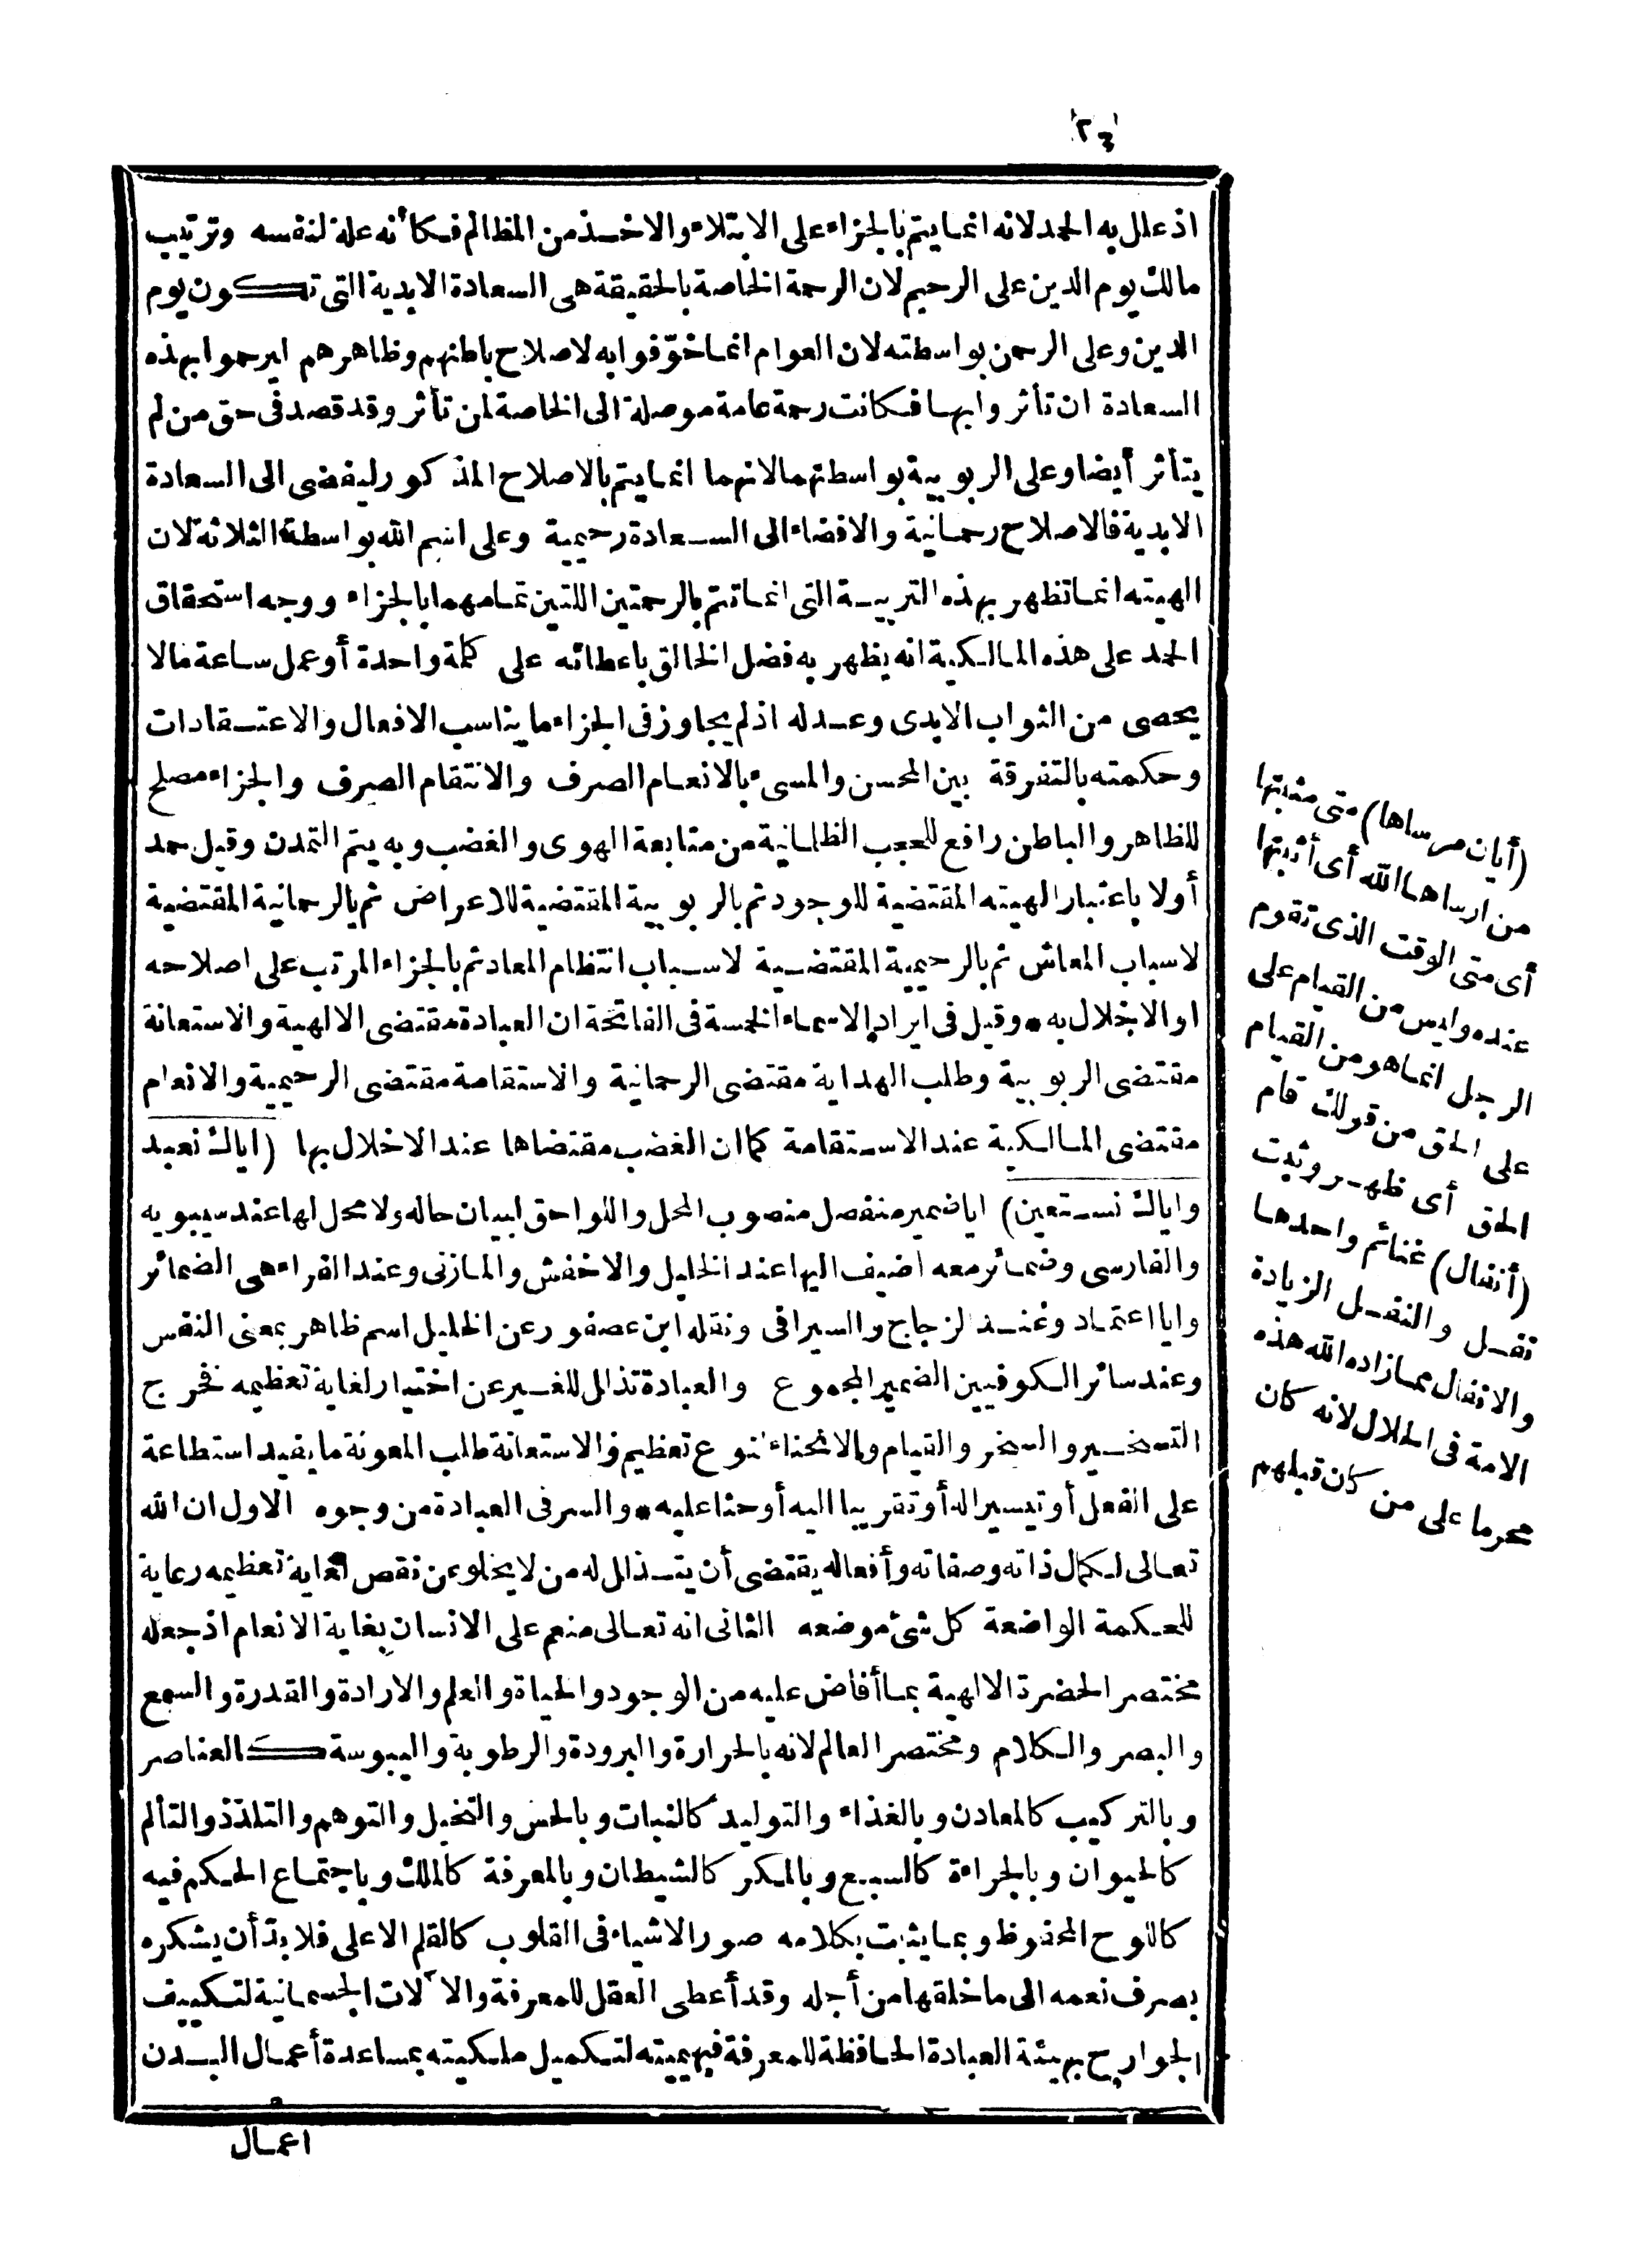 ٢٤
اذ علل به الحمد لانه انما يتم بالجزاء على الابتلاء والاخذ من المظالم فكأنه علة لنفسه وترتيب
مالك يوم الدين على الرحيم لان الرحمة الخاصة بالحقيقة هى السعادة الابدية التى تكون يوم
الدين وعلى الرحمن بواسطته لان العوام انما خوّفوا به لاصلاح باطنهم وظاهرهم ليرحموا بهذه
السعادة ان تأثروا بها فكانت رحمة عامة موصلة الى الخاصة لمن تأثر وقد قصد فى حق من لم
يتأثر أيضا وعلى الربوبية بواسطتهما لانهما انما يتم بالاصلاح المذكور ليفضى الى السعادة
الابدية فالاصلاح رحمانية والافضاء الى السعادة رحيمية وعلى اسم الله بواسطة الثلاثة لان
الهيته انما تظهر بهذه التربية التى انما تتم بالرحمتين اللتين تمامهما بالجزاء ووجه استحقاق
الحمد على هذه المالكية انه يظهر به فضل الخالق باعطائه على كلمة واحدة أو عمل ساعة مالا
يحصى من الثواب الابدى وعدله اذ لم يجاوز فى الجزاء ما يناسب الافعال والاعتقادات
وحكمته بالتفرقة بين المحسن والمسىء بالانعام الصرف والانتقام الصرف والجزاء مصلح
للظاهر والباطن رافع للحجب الظلمانية من متابعة الهوى والغضب وبه يتم التمدن وقيل حمد
أولا باعتبار الهيته المقتضية للوجود ثم بالربوبية المقتضية للاعراض ثم بالرحمانية المقتضية
لاسباب المعاش ثم بالرحيمية المقتضية لاسباب انتظام المعاد ثم بالجزاء المرتب على اصلاحه
او الاخلال به * وقيل فى ايراد الاسماء الخمسة فى الفاتحة ان العبادة مقتضى الالهية والاستعانة
مقتضى الربوبية وطلب الهداية مقتضى الرحمانية والاستقامة مقتضى الرحيمية والانعام
مقتضى المالكية عند الاستقامة كما ان الغضب مقتضاها عند الاخلال بها (اياك نعبد
واياك نستعين) ايا ضمير منفصل منصوب المحل واللواحق لبيان حاله ولا محل لها عند سيبويه
والفارسى وضمائر معه اضيف اليها عند الخليل والاخفش والمازنى وعند الفراء هى الضمائر
وايا اعتماد وعند الزجاج والسيرافى ونقله ابن عصفور عن الخليل اسم ظاهر بمعنى النفس
وعند سائر الكوفيين الضمير المجموع والعبادة تذلل للغير عن اختيار لغاية تعظيمه فخرج
التسخير والسخر والقيام والانحناء لنوع تعظيم والاستعانة طلب المعونة ما يفيد استطاعة
على الفعل أو تيسيرا له أو تقريبا اليه أو حثا عليه * والسر فى العبادة من وجوه الاول ان الله
تعالى لكمال ذاته وصفاته وأفعاله يقتضى أن يتذلل له من لا يخلو عن نقص لغاية تعظيمه رعاية
للحكمة الواضعة كل شئ موضعه الثانى انه تعالى منعم على الانسان بغاية الانعام اذ جعله
مختصر الحضرة الالهية بما أفاض عليه من الوجود والحياة والعلم والارادة والقدرة والسمع
والبصر والكلام ومختصر العالم لانه بالحرارة والبرودة والرطوبة واليبوسة كالعناصر
وبالتركيب كالمعادن وبالغذاء والتوليد كالنبات وبالحس والتخيل والتوهم والتلذذ والتألم
كالحيوان وبالجراءة كالسبع وبالمكر كالشيطان وبالمعرفة كالملك وباجتماع الحكم فيه
كاللوح المحفوظ وبما يثبت بكلامه صور الاشياء فى القلوب كالقلم الاعلى فلا بدّ أن يشكره
بصرف نعمه الى ما خلقها من أجله وقد أعطى العقل للمعرفة والآلات الجسمانية لتكييف
الجوارح بهيئة العبادة الحافظة للمعرفة فبهيميته لتكميل ملكيته بمساعدة أعمال البدن
اعمال
(أيان مرساها) متى مثبتها
من ارساها الله أى أثبتها
أى متى الوقت الذى تقوم
عنده وليس من القيام على
الرجل انما هو من القيام
على الحق من قولك قام
الحق أى ظهر وثبت
(أنفال) غنائم واحدها
نفل والنفل الزيادة
والانفال مما زاده الله هذه
الامة فى الحلال لانه كان
محرما على من كان قبلهم